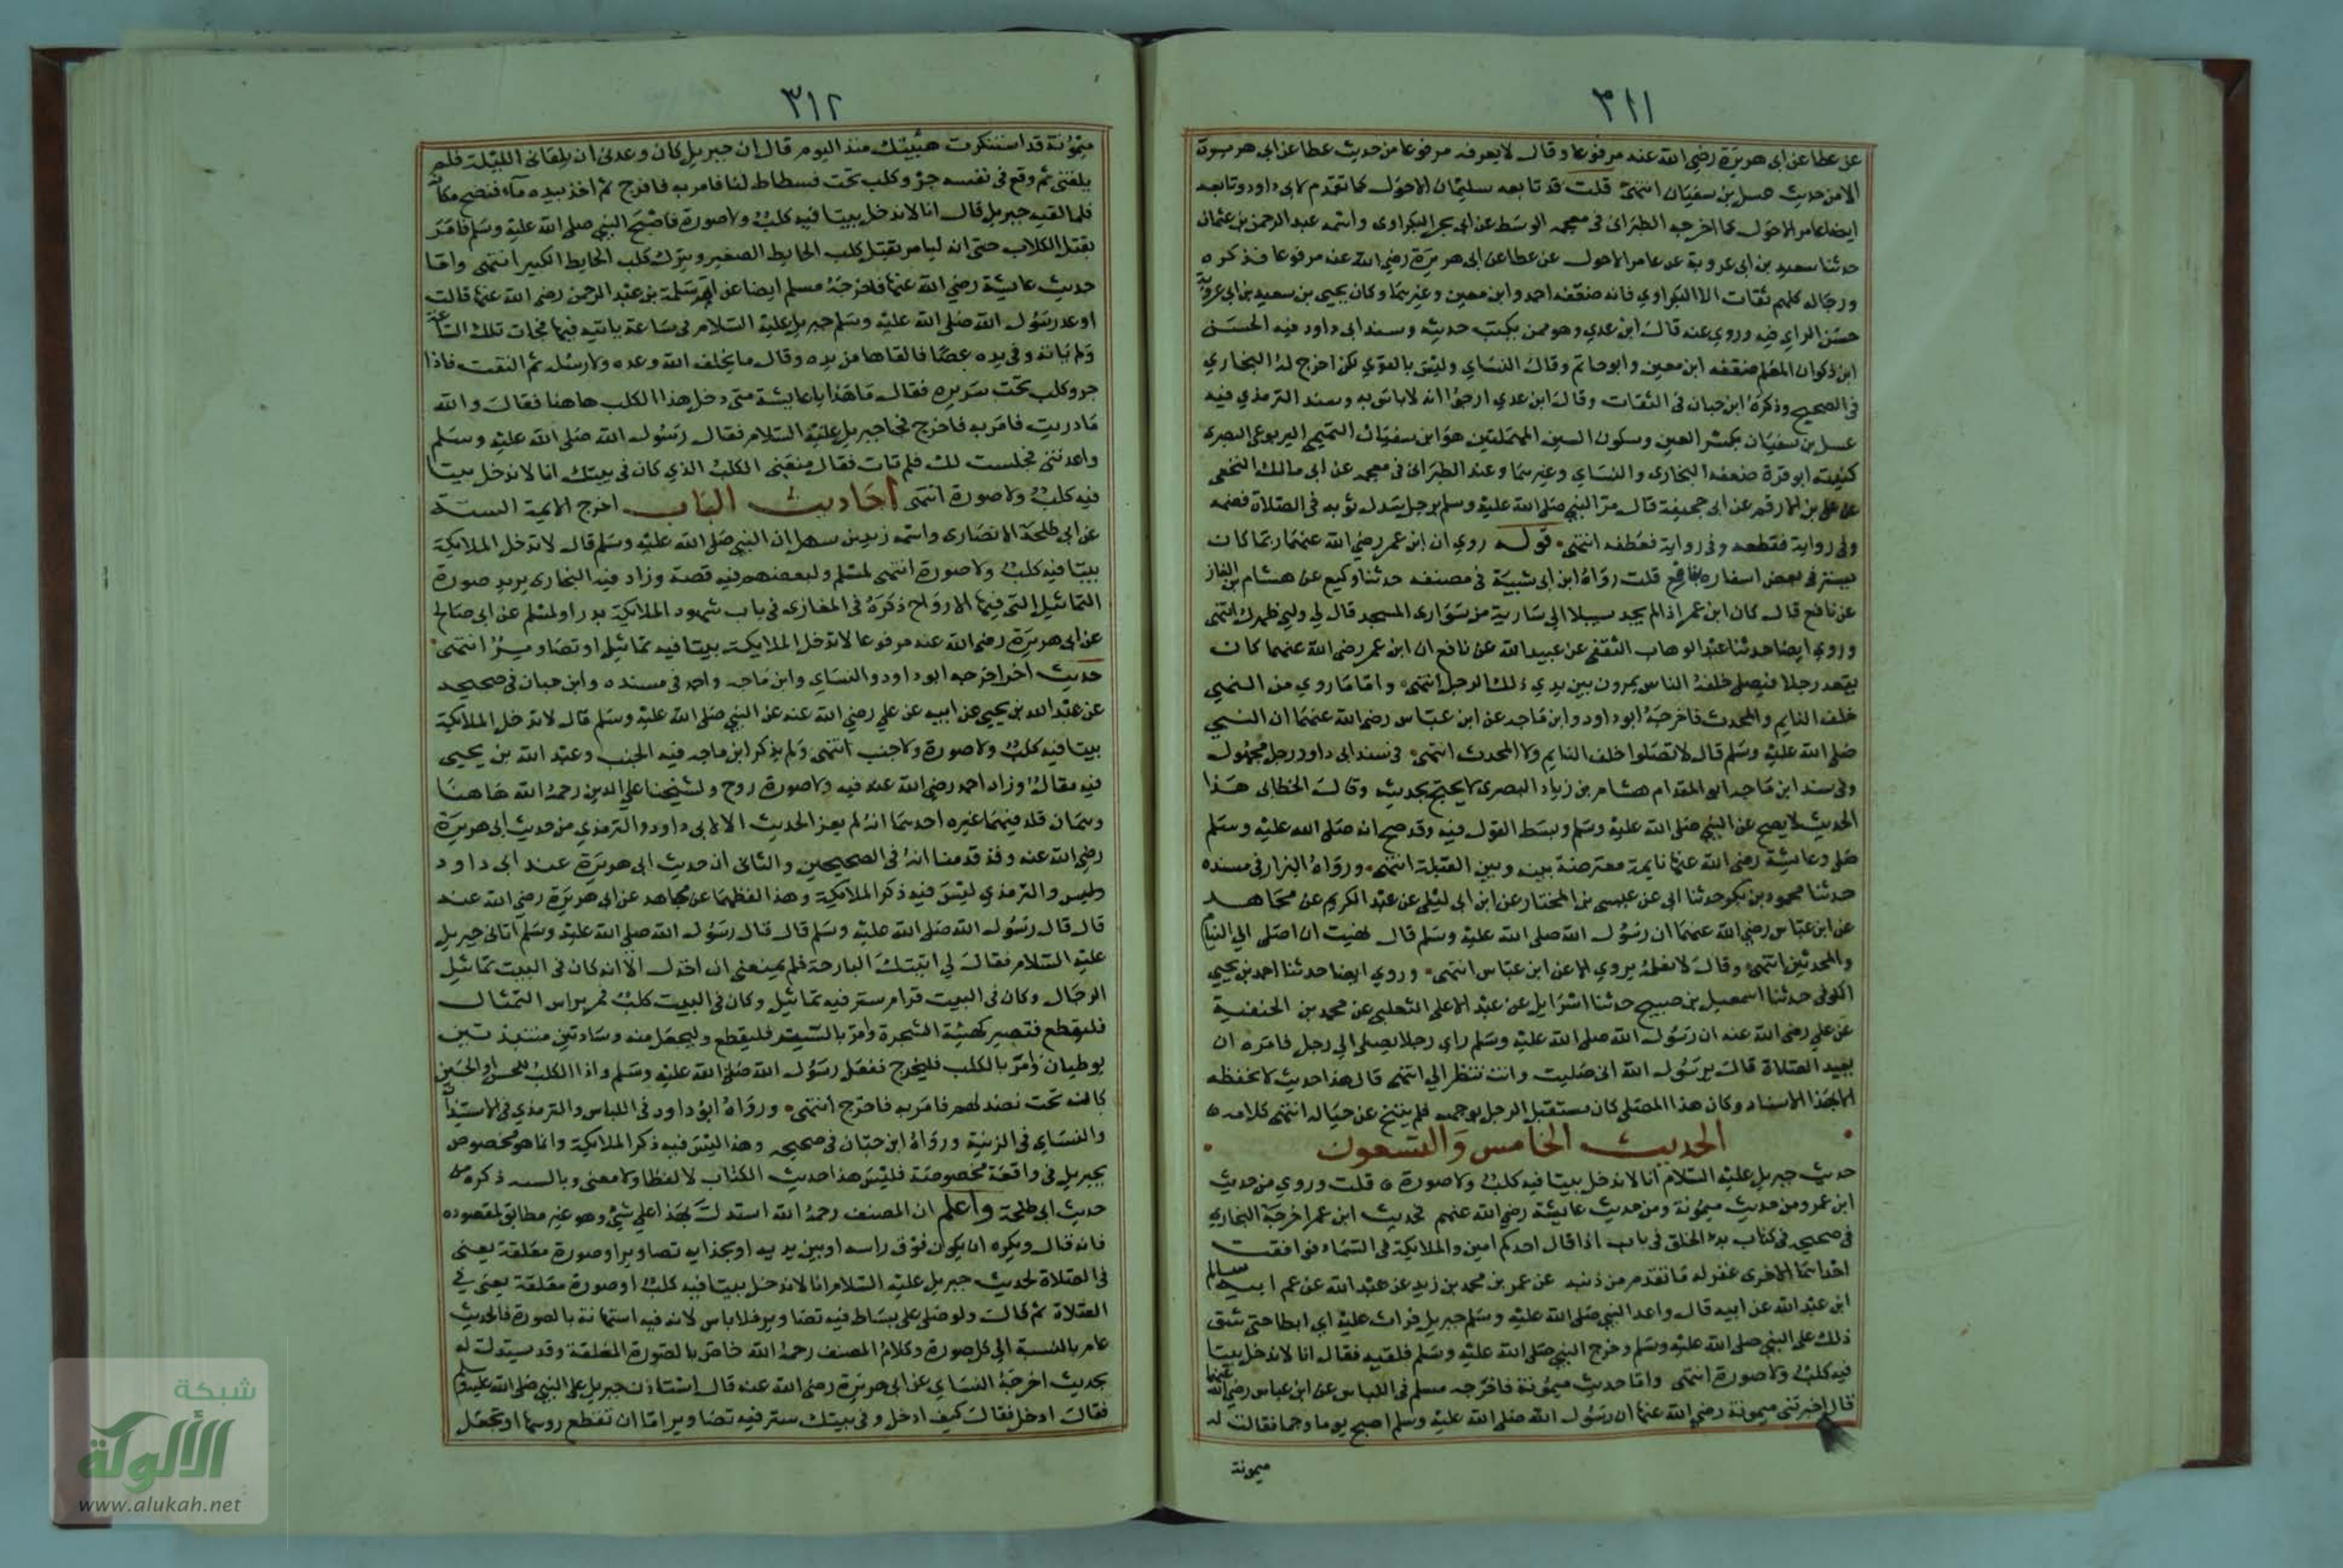 ٣١١
عن عطا عن ابى هريرة رضى الله عنه مرفوعا وقال لا يعرفه مرفوعا من حديث عطا عن ابى هريرة
الا من حديث عسل بن سفيان انتهى قلت قد تابعه سليمان الاحول كما تقدم لابى داود وتابعه
ايضا عامر الاحول كما اخرجه الطبرانى فى معجمه الوسط عن ابى بحر البكراوى واسمه عبد الرحمن بن عثمان
حدثنا سعيد بن ابى عروبة عن عامر الاحول عن عطا عن ابى هريرة رضى الله عنه مرفوعا فذكره
ورجاله كلهم ثقات الا البكراوي فانه ضعفه احمد وابن معين وغيرهما وكان يحيى بن سعيد بن ابى عروبة
حسن الراي فيه وروي عنه قال ابن عدي وهو ممن يكتب حديثه وسند ابى داود فيه الحسن
ابن ذكوان المعلم ضعفه ابن معين وابو حاتم وقال النساي وليس بالقوي لكن اخرج له البخاري
فى الصحيح وذكره ابن حبان فى الثقات وقال ابن عدي ارجوا انه لا باس به وسند الترمذي فيه
عسل بن سفيان بكسر العين وسكون السين المهملتين هو ابن سفيان التميمى اليربوعى البصرى
كنيته ابو قرة ضعفه البخارى والنساي وغيرهما وعند الطبرانى فى معجمه عن ابى مالك النخعى
عن على بن الارقم عن ابى جحيفة قال مر النبي صلى الله عليه وسلم برجل يسدل ثوبه فى الصلاة فضمه
وفى رواية فقطعه وفى رواية فعطفه انتهى قوله روي ان ابن عمر رضي الله عنهما ربما كان
يستتر فى بعض اسفاره بنافع قلت رواه ابن ابى شيبة فى مصنفه حدثنا وكيع عن هشام بن الغاز
عن نافع قال كان ابن عمر اذا لم يجد سبيلا الى سارية من سوارى المسجد قال لي ولني ظهرك انتهى
وروي ايضا حدثنا عبد الوهاب الثقفى عن عبيد الله عن نافع ان ابن عمر رضى الله عنهما كان
يقعد رجلا فيصلى خلفه الناس يمرون بين يدي ذلك الرجل انتهى واما ما روي من النهي
خلف النايم والمحدث فاخرجه ابو داود وابن ماجه عن ابن عباس رضى الله عنهما ان النبي
صلى الله عليه وسلم قال لا تصلوا خلف النايم ولا المحدث انتهى فى سند ابى داود رجل مجهول
وفى سند ابن ماجه ابو المقدام هشام بن زياد البصرى لا يحتج بحديثه وقال الخطابى هذا
الحديث لا يصح عن النبي صلى الله عليه وسلم وبسط القول فيه وقد صح انه صلى الله عليه وسلم
صلى وعايشة رضى الله عنها نايمة معترضة بينه وبين القبلة انتهى ورواه البزار فى مسنده
حدثنا محمود بن بكر حدثنا ابى عن عيسى بن المختار عن ابن ابى ليلى عن عبد الكريم عن مجاهد
عن ابن عباس رضي الله عنهما ان رسول الله صلى الله عليه وسلم قال نهيت ان اصلى الي النيام
والمحدثين انتهى وقال لا نعلمه يروي الا عن ابن عباس انتهى وروي ايضا حدثنا احمد بن يحيى
الكوفى حدثنا اسمعيل بن صبيح حدثنا اسرايل عن عبد الاعلى الثعلبى عن محمد بن الحنفية
عن علي رضى الله عنه ان رسول الله صلى الله عليه وسلم راي رجلا يصلى الي رجل فامره ان
يعيد الصلاة قال يرسول الله انى صليت وانت تنظر الي انتهى قال هذا حديث لا نحفظه
الا بهذا الاسناد وكان هذا المصلى كان مستقبل الرجل بوجهه فلم يتنح عن حياله انتهى كلامه
الحديث الخامس والتسعون
حديث جبريل عليه السلام انا لا ندخل بيتا فيه كلب ولا صورة قلت وروي من حديث
ابن عمر ومن حديث ميمونة ومن حديث عايشة رضي الله عنهم فحديث ابن عمر اخرجه البخاري
فى صحيحه فى كتاب بدء الخلق فى باب اذا قال احدكم امين والملايكة فى السماء فوافقت
احداهما الاخرى غفر له ما تقدم من ذنبه عن عمر بن محمد بن زيد عن عبد الله عن عم ابيه سالم
ابن عبد الله عن ابيه قال واعد النبي صلى الله عليه وسلم جبريل فراث عليه اي ابطا حتى شق
ذلك على النبي صلى الله عليه وسلم وخرج النبي صلى الله عليه وسلم فلقيه فقال انا لا ندخل بيتا
فيه كلب ولا صورة انتهى واما حديث ميمونة فاخرجه مسلم فى اللباس عن ابن عباس رضى الله عنهما
قال اخبرتنى ميمونة رضي الله عنها ان رسول الله صلى الله عليه وسلم اصبح يوما واجما فقالت له
ميمونة
٣١٢
ميمونة قد استنكرت هيئتك منذ اليوم قال ان جبريل كان وعدنى ان يلقانى الليلة فلم
يلقنى ثم وقع فى نفسه جرو كلب تحت فسطاط لنا فامر به فاخرج ثم اخذ بيده ماء فنضح مكانه
فلما لقيه جبريل قال انا لا ندخل بيتا فيه كلب ولا صورة فاصبح النبي صلى الله عليه وسلم فامر
بقتل الكلاب حتى انه ليامر بقتل كلب الحايط الصغير ويترك كلب الحايط الكبير انتهى واما
حديث عايشة رضي الله عنها فاخرجه مسلم ايضا عن ابى سلمة بن عبد الرحمن رضى الله عنها قالت
اوعد رسول الله صلى الله عليه وسلم جبريل عليه السلام فى ساعة ياتيه فيها فجات تلك الساعة
ولم ياته وفى يده عصا فالقاها من يده وقال ما يخلف الله وعده ولا رسله ثم التفت فاذا
جرو كلب تحت سريره فقال ما هذا يا عايشة متى دخل هذا الكلب هاهنا فقالت والله
ما دريت فامر به فاخرج فجا جبريل عليه السلام فقال رسول الله صلى الله عليه وسلم
واعدتنى فجلست لك فلم تات فقال منعنى الكلب الذي كان فى بيتك انا لا ندخل بيتا
فيه كلب ولا صورة انتهى احاديث الباب اخرج الايمة الستة
عن ابى طلحة الانصارى واسمه زيد بن سهل ان النبي صلى الله عليه وسلم قال لا تدخل الملايكة
بيتا فيه كلب ولا صورة انتهى لمسلم ولبعضهم فيه قصة وزاد فيه البخارى يريد صورة
التماثيل التى فيها الارواح ذكره فى المغازى فى باب شهود الملايكة بدرا ولمسلم عن ابى صالح
عن ابى هريرة رضى الله عنه مرفوعا لا تدخل الملايكة بيتا فيه تماثيل او تصاوير انتهى
حديث اخر اخرجه ابو داود والنساي وابن ماجه واحمد فى مسنده وابن حبان فى صحيحه
عن عبد الله بن يحيى عن ابيه عن علي رضي الله عنه عن النبي صلى الله عليه وسلم قال لا تدخل الملايكة
بيتا فيه كلب ولا صورة ولا جنب انتهى ولم يذكر ابن ماجه فيه الجنب وعبد الله بن يحيى
فيه مقال وزاد احمد رضى الله عنه فيه ولا صورة روح ولشيخنا علاي الدين رحمه الله هاهنا
وهمان قلد فيهما غيره احدهما انه لم يعز الحديث الا لابى داود والترمذي من حديث ابى هريرة
رضى الله عنه وقد قدمنا انه فى الصحيحين والثانى ان حديث ابى هريرة عند ابى داود
وليس والترمذي ليس فيه ذكر الملايكة وهذا لفظهما عن مجاهد عن ابى هريرة رضي الله عنه
قال قال رسول الله صلى الله عليه وسلم قال قال رسول الله صلى الله عليه وسلم اتانى جبريل
عليه السلام فقال لي اتيتك البارحة فلم يمنعنى ان ادخل الا انه كان فى البيت تماثيل
الرجال وكان فى البيت قرام ستر فيه تماثيل وكان فى البيت كلب فمر براس التمثال
فليقطع فتصير كهيئة الشجرة وامر بالستر فليقطع وليجعل منه وسادتين منتبذتين
يوطيان وامر بالكلب فليخرج ففعل رسول الله صلى الله عليه وسلم واذا الكلب للحسن او الحسين
كانت تحت نضد لهم فامر به فاخرج انتهى ورواه ابو داود فى اللباس والترمذي فى الاستيذان
والنساي فى الزينة ورواه ابن حبان فى صحيحه وهذا ليس فيه ذكر الملايكة وانما هو مخصوص
بجبريل فى واقعة مخصوصة فليس هذا حديث الكتاب لا لفظا ولا معنى وبالسند ذكره من
حديث ابى طلحة واعلم ان المصنف رحمه الله استدل بهذا على شئ وهو غير مطابق لمقصوده
فانه قال ويكره ان يكون فوق راسه او بين يديه او بحذايه تصاوير او صورة معلقة يعنى
فى الصلاة لحديث جبريل عليه السلام انا لا ندخل بيتا فيه كلب او صورة معلقة يعنى في
الصلاة ثم قال ولو صلى على بساط فيه تصاوير فلا باس لانه فيه استهانة بالصورة فالحديث
عام بالنسبة الى كل صورة وكلام المصنف رحمه الله خاص بالصورة المعلقة وقد يستدل له
بحديث اخرجه النساي عن ابى هريرة رضى الله عنه قال استاذن جبريل على النبي صلى الله عليه وسلم
فقال ادخل فقال كيف ادخل وفى بيتك ستر فيه تصاوير اما ان تقطع روسها او تجعل
شبكة
الألوكة
www.alukah.net